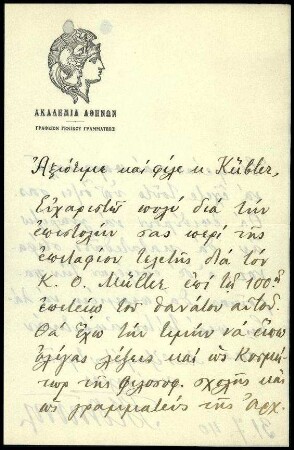 ΑΚΑΔΗΜΙΑ ΑΘΗΝΩΝ
ΓΡΑΦΕΙΟΝ ΓΕΝΙΚΟΥ ΓΡΑΜΜΑΤΕΩΣ
Ἀξιότιμε καὶ φίλε κ. Kübler,
Εὐχαριστῶ πολὺ διὰ τὴν
ἐπιστολήν σας περὶ τῆς
ἐπιταφίου τελετῆς διὰ τὸν
K. O. Müller ἐπὶ τῇ 100ῇ
ἐπετείῳ τοῦ θανάτου αὐτοῦ.
Θὰ ἔχω τὴν τιμὴν νὰ εἴπω
ὀλίγας λέξεις καὶ ὡς Κοσμή-
τωρ τῆς φιλοσοφ. σχολῆς καὶ
ὡς γραμματεὺς τῆς Ἀρχ.